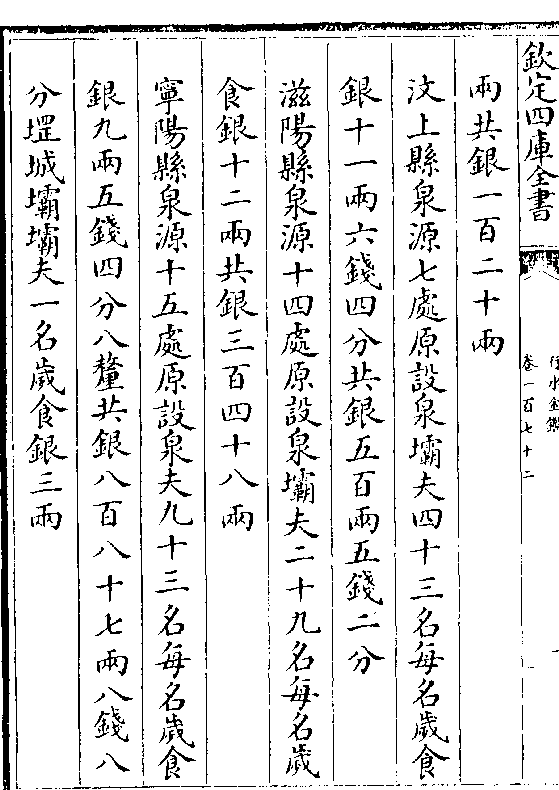 欽定四庫全書
行水金鑑
卷一百七十二
兩共銀一百二十兩
汶上縣泉源七處原設泉壩夫四十三名每名歲食
銀十一兩六錢四分共銀五百兩五錢二分
滋陽縣泉源十四處原設泉壩夫二十九名每名歲
食銀十二兩共銀三百四十八兩
寧陽縣泉源十五處原設泉夫九十三名每名歲食
銀九兩五錢四分八釐共銀八百八十七兩八錢八
分堽城壩壩夫一名歲食銀三兩